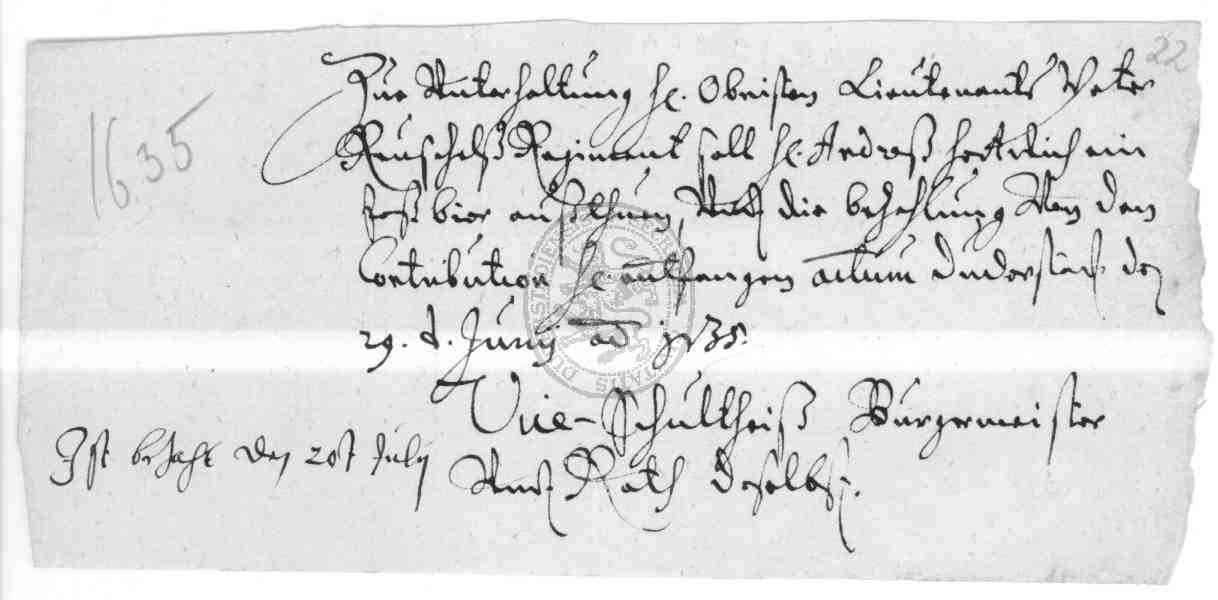 22
1635
Zur Unterhaltung H. Obristen Lieutenants Peter
Reuschels Regiment soll H. Andreß ein
faß bier außthuen, Undt die bezahlung Von den
Contribution H. entfangen actum Duderstadt den
29. t. Junij ao 1635.
Vice-Schultheiß Bürgermeister
Undt Rath daselbst.
Ist bezahlt den 20st July